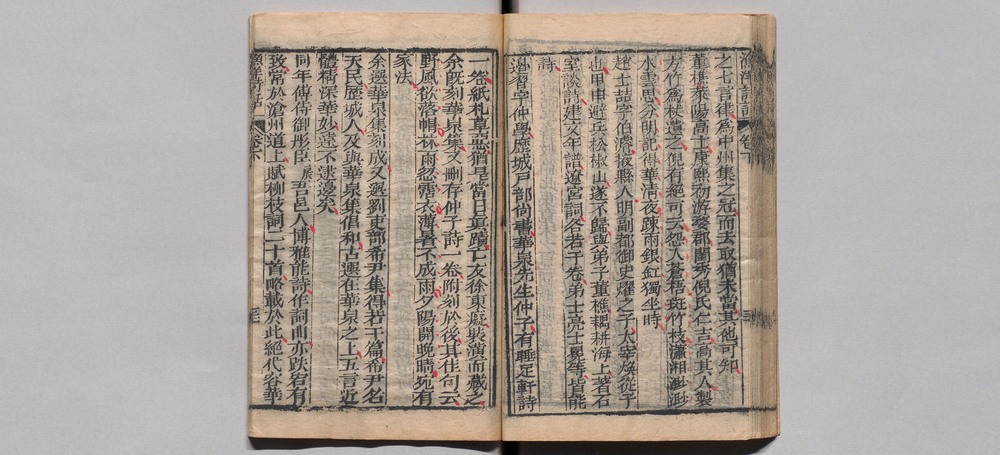 之七言律為中州集之冠而去取猶未當其他可知
董樵萊陽高士康熙初游婺郡蘭秀倪氏仁吉高其人製
方竹為杖遺之倪有絕句云怨人蒼梧斑竹枝瀟湘渺渺
水雲思分明記得華清夜疎雨銀缸獨坐時
趙士喆字伯濬掖縣人明副都御史燿之子太宰煥從子
也甲申避兵松椒山遂不歸與弟子董樵耦耕海上著石
室談詩建文年譜遼宮詞各若干卷弟士亮士冕等皆能
詩
邊習字仲學歷城戶部尚書華泉先生仲子有睡足軒詩
一卷紙札草惡猶是當日真蹟亡友徐東癡裝潢而藏之
余既刻華泉集又刪存仲子詩一卷附刻於後其佳句云
野風欲落帽林雨忽霑衣薄暑不成雨夕陽開晚晴宛有
家法
余選華泉集刻成又選劉吏部希尹集得若干篇希尹名
天民歷城人及與華泉集倡和古選在華泉之上五言近
體精深華妙遠不逮邊矣
同年傅侍御彤臣扆吾邑人博雅能詩作詞曲亦跌宕有
致常於滄州道上賦柳枝詞二十首略載於此絕代容華
卷下